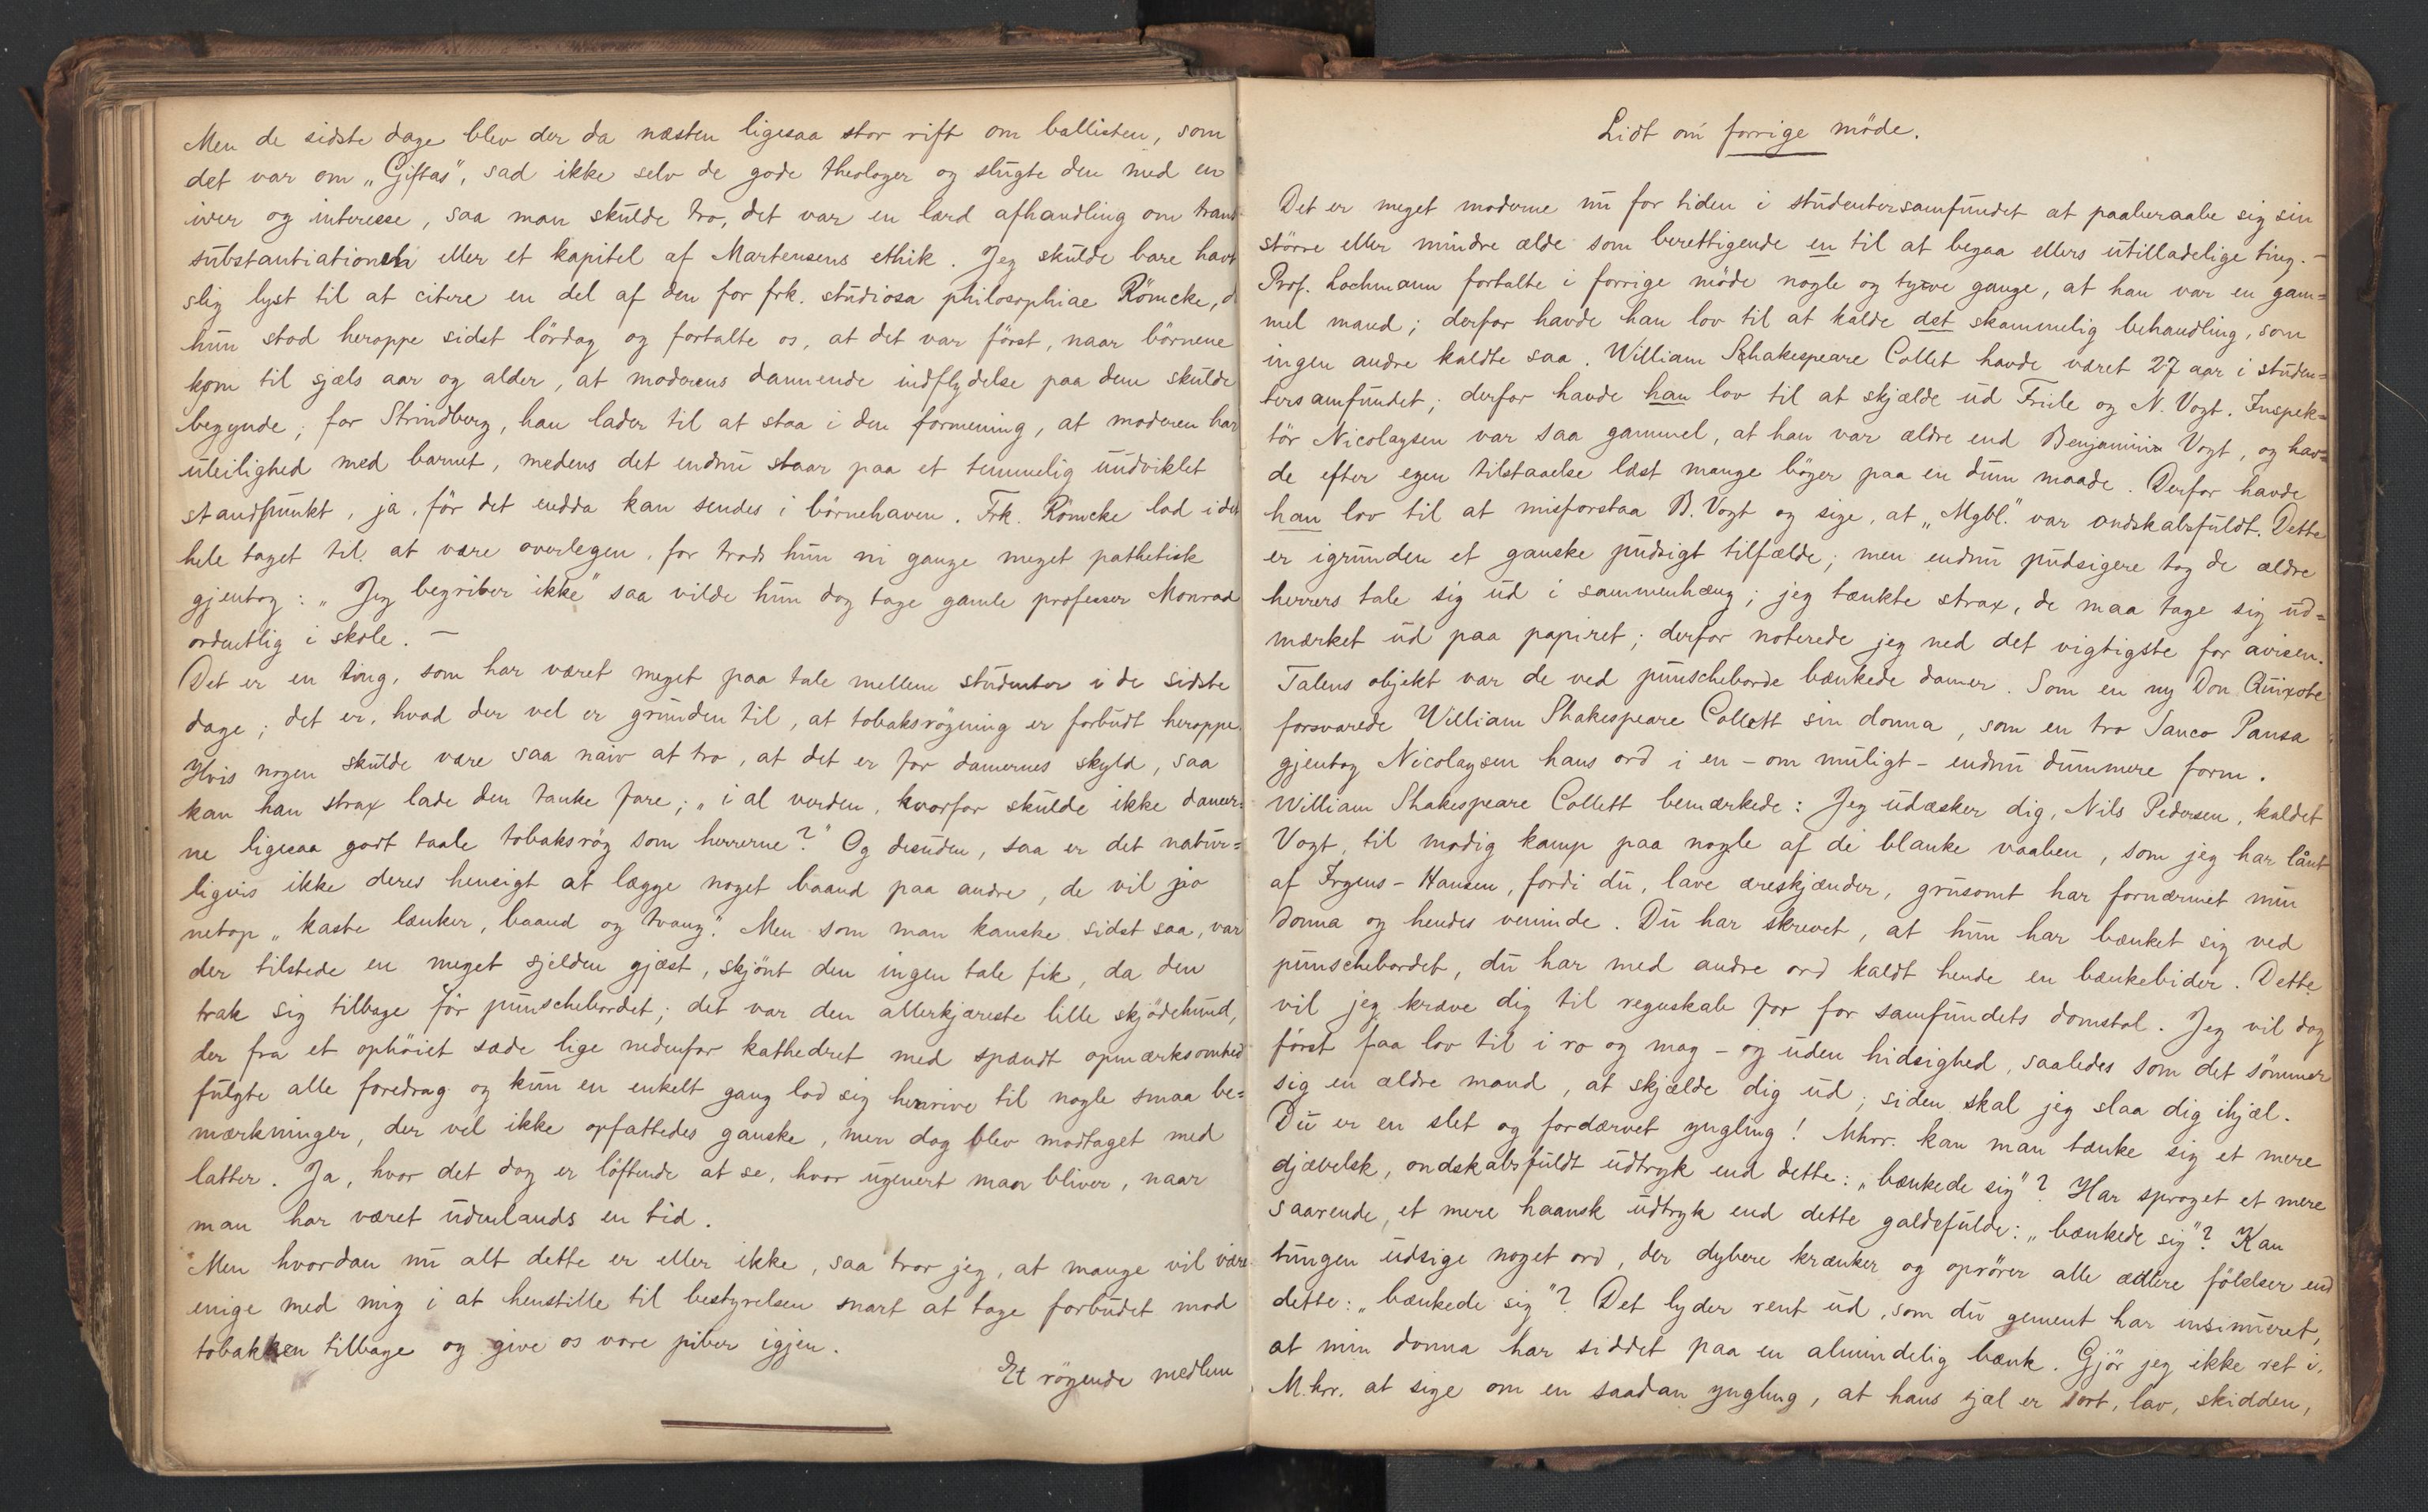 Men de sidste dage blev der da næsten ligesaa stor rift om ballisten, som
det var om „Giftas“, sad ikke selv de gode theologer og slugte den med en
iver og interesse, saa man skulde tro, det var en lærd afhandling om trans-
substantiationen eller et kapitel af Martensens ethik. Jeg skulde bare havt
slig lyst til at citere en del af den for frk. studiosa philosophiae Römcke, d
hun stod heroppe sidst lördag og fortalte os, at det var först, naar börnene
kom til sjæls aar og alder, at moderens dannende indflydelse paa dem skulde
begynde; for Strindberg, han lader til at staa i den formening, at moderen har
uleilighed med barnet, medens det endnu staar paa et temmelig uudviklet
standpunkt, ja, för det endda kan sendes i börnehaven. Frk. Römcke lod i det
hele taget til at være overlegen, for trods hun ni gange meget pathetisk
gjentog: „Jeg begriber ikke“ saa vilde hun dog tage gamle professor Monrad
ordentlig i skole. —
Det er en ting, som har været meget paa tale mellem studenter i de sidste
dage; det er, hvad der vel er grunden til, at tobaksrögning er forbudt heroppe.
Hvis nogen skulde være saa naiv at tro, at det er for damernes skyld, saa
kan han strax lade den tanke fare; „i al verden, hvorfor skulde ikke damer-
ne ligesaa godt taale tobaksrög som herrerne?“ Og desuden, saa er det natur=
ligvis ikke deres hensigt at lægge noget baand paa andre, de vil jo
netop „kaste lænker, baand og tvang“. Men som man kanske sidst saa, var
der tilstede en meget sjelden gjæst, skjönt den ingen tale fik, da den
trak sig tilbage för punschebordet; det var den allerkjæreste lille skjödehund,
der fra et ophöiet sæde lige nedenfor kathedret med spændt opmærksomhed
fulgte alle foredrag og kun en enkelt gang lod sig henrive til nogle smaa be=
mærkninger, der vel ikke opfattedes ganske, men dog blev modtaget med
latter. Ja, hvor det dog er löftende at se, hvor ugenert man bliver, naar
man har været udenlands en tid.
Men hvordan nu alt dette er eller ikke, saa tror jeg, at mange vil være
enige med mig i at henstille til bestyrelsen snart at tage forbudet mod
tobakken tilbage og give os vore piber igjen.
Et rögende medlem
Lidt om forrige möde.
Det er meget moderne nu for tiden i studentersamfundet at paaberaabe sig sin
större eller mindre ælde som berettigende en til at begaa ellers utilladelige ting. —
Prof. Lochmann fortalte i forrige möde nogle og tyve gange, at han var en gam=
mel mand; derfor havde han lov til at kalde det skammelig behandling, som
ingen andre kaldte saa. William Shakespeare Collet havde været 27 aar i studen=
tersamfundet; derfor havde han lov til at skjælde ud Friele og N. Vogt. Inspek=
tör Nicolaysen var saa gammel, at han var ældre end Benjamin Vogt, og hav=
de efter egen tilstaaelse læst mange böger paa en dum maade. Derfor havde
han lov til at misforstaa B. Vogt og sige, at „Mgbl.“ var ondskabsfuldt. Dette
er igrunden et ganske pudsigt tilfælde; men endnu pudsigere tog de ældre
herrers tale sig ud i sammenhæng; jeg tænkte strax, de maa tage sig ud=
mærket ud paa papiret; derfor noterede jeg ned det vigtigste for avisen.
Talens objekt var de ved punscheborde bænkede damer. Som en ny Don Quixote
forsvarede William Shakespeare Collett sin donna, som en tro Sanco Pansa
gjentog Nicolaysen hans ord i en – om muligt – endnu dummere form.
William Shakespeare Collett bemærkede: Jeg udæsker dig, Nils Pedersen, kaldet
Vogt, til modig kamp paa nogle af de blanke vaaben, som jeg har lånt
af Irgens-Hansen, fordi du, lave æreskjænder, grusomt har fornærmet min
donna og hendes veninde. Du har skrevet, at hun har bænket sig ved
punschebordet, du har med andre ord kaldt hende en bænkebider. Dette
vil jeg kræve dig til regnskab for for samfundets domstol. Jeg vil dog
först faa lov til i ro og mag – og uden hidsighed, saaledes som det sömmer
sig en ældre mand, at skjælde dig ud; siden skal jeg slaa dig ihjæl.
Du er en slet og fordærvet yngling! Mhrr. kan man tænke sig et mere
djævelsk, ondskabsfuldt udtryk end dette: „bænkede sig“? Har sproget et mere
saarende, et mere haansk udtryk end dette galdefulde: „bænkede sig“? Kan
tungen udsige noget ord, der dybere krænker og oprörer alle ædlere fölelser end
dette: „bænkede sig“? Det lyder rent ud, som du gement har insinueret,
at min donna har siddet paa en almindelig bænk. Gjör jeg ikke ret i,
M.hrr. at sige om en saadan yngling, at hans sjæl er sort, lav, skidden,